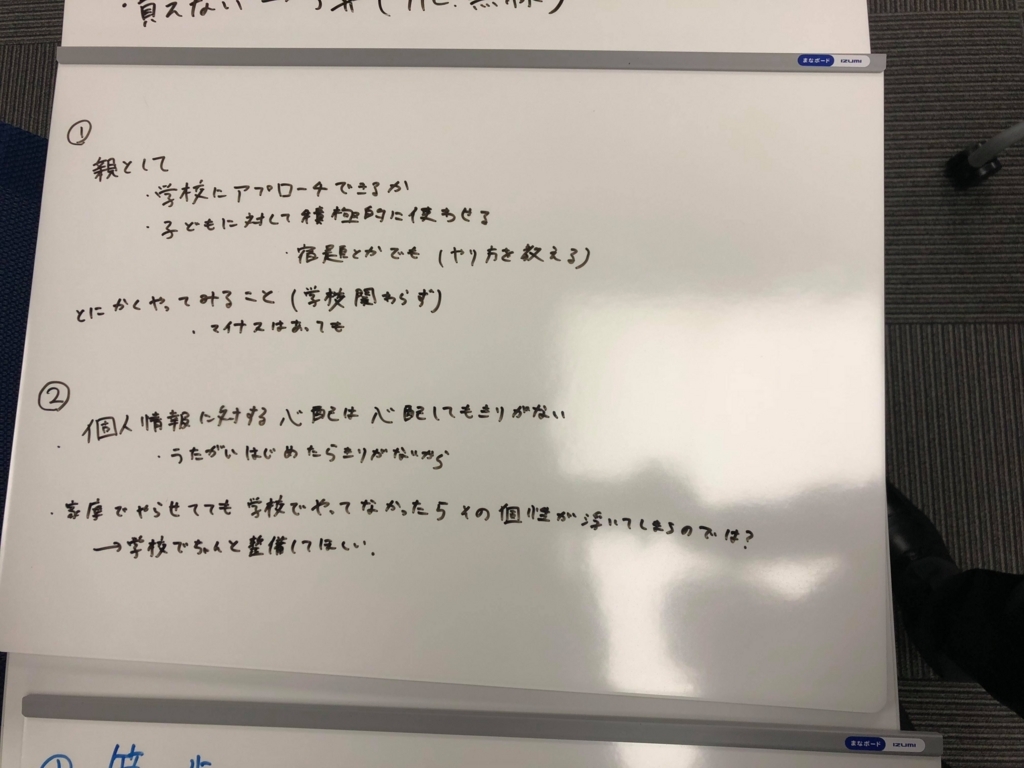 ・買えない
まなボード IZUMI
①
親として
・学校にアプローチできるか
・子どもに対して積極的に使わせる
・宿題とかでも (やり方を教える)
とにかくやってみること (学校関わらず)
・マイナスはあっても
②
・個人情報に対する心配は心配してもきりがない
・うたがいはじめたらきりがないから
・家庭でやらせてても学校でやってなかったらその個性が浮いてしまうのでは?
→学校でちゃんと整備してほしい.
まなボード IZUMI
①